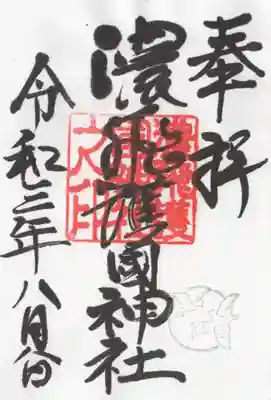 奉拝
濃飛護國神社
令和三年八月八日